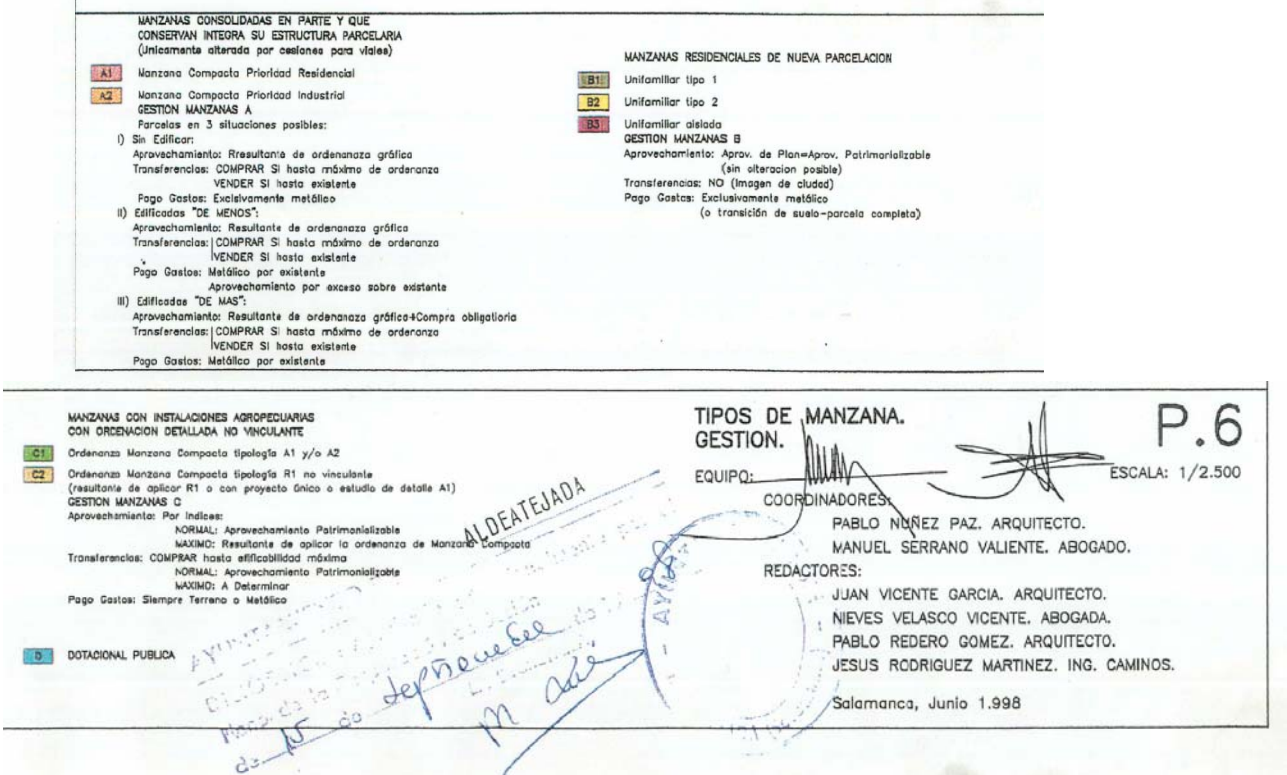 MANZANAS CONSOLIDADAS EN PARTE Y QUE
CONSERVAN INTEGRA SU ESTRUCTURA PARCELARIA
(Unicamente alterada por cesiones para viales)
A1 Manzana Compacta Prioridad Residencial
A2 Manzana Compacta Prioridad Industrial
GESTION MANZANAS A
Parcelas en 3 situaciones posibles:
I) Sin Edificar:
Aprovechamiento: Rresultante de ordenanaza gráfica
Transferencias: COMPRAR SI hasta máximo de ordenanza
VENDER SI hasta existente
Pago Gastos: Exclsivamente metálico
II) Edificadas "DE MENOS":
Aprovechamiento: Resultante de ordenanaza gráfica
Transferencias: COMPRAR SI hasta máximo de ordenanza
VENDER SI hasta existente
Pago Gastos: Metálico por existente
Aprovechamiento por exceso sobre existente
III) Edificadas "DE MAS":
Aprovechamiento: Resultante de ordenanaza gráfica+Compra obligatioria
Transferencias: COMPRAR SI hasta máximo de ordenanza
VENDER SI hasta existente
Pago Gastos: Metálico por existente
MANZANAS RESIDENCIALES DE NUEVA PARCELACION
B1 Unifamiliar tipo 1
B2 Unifamiliar tipo 2
B3 Unifamiliar aislada
GESTION MANZANAS B
Aprovechamiento: Aprov. de Plan=Aprov. Patrimonializable
(sin alteracion posible)
Transferencias: NO (Imagen de ciudad)
Pago Gastos: Exclusivamente metálico
(o transición de suelo-parcela completa)
MANZANAS CON INSTALACIONES AGROPECUARIAS
CON ORDENACION DETALLADA NO VINCULANTE
C1 Ordenanza Manzana Compacta tipología A1 y/o A2
C2 Ordenanza Manzana Compacta tipología R1 no vinculante
(resultante de aplicar R1 o con proyecto único o estudio de detalle A1)
GESTION MANZANAS C
Aprovechamiento: Por indices:
NORMAL: Aprovechamiento Patrimonializable
MAXIMO: Resultante de aplicar la ordenanza de Manzana Compacta
Transferencias: COMPRAR hasta edificabilidad máxima
NORMAL: Aprovechamiento Patrimonializable
MAXIMO: A Determinar
Pago Gastos: Siempre Terreno o Metálico
D DOTACIONAL PUBLICA
ALDEATEJADA
septiembre
TIPOS DE MANZANA.
GESTION.
P.6
EQUIPO:
ESCALA: 1/2.500
COORDINADORES:
PABLO NUÑEZ PAZ. ARQUITECTO.
MANUEL SERRANO VALIENTE. ABOGADO.
REDACTORES:
JUAN VICENTE GARCIA. ARQUITECTO.
NIEVES VELASCO VICENTE. ABOGADA.
PABLO REDERO GOMEZ. ARQUITECTO.
JESUS RODRIGUEZ MARTINEZ. ING. CAMINOS.
Salamanca, Junio 1.998